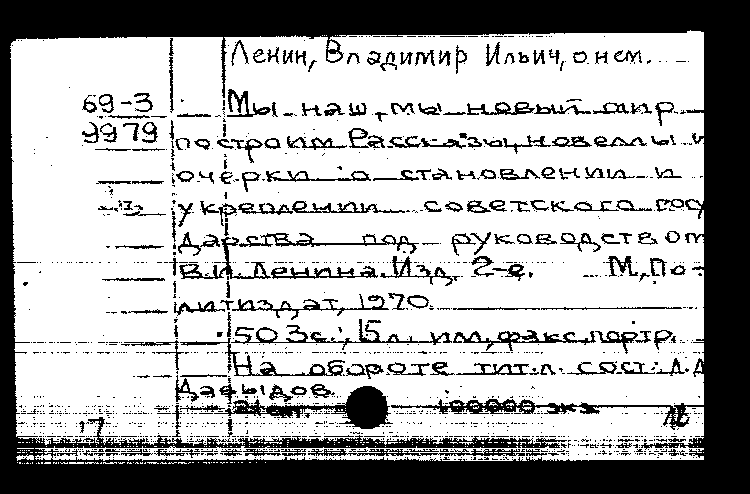 Ленин, Владимир Ильич, о нем.
69-3
9979
Мы наш, мы новый мир
построим Рассказы, новеллы и
очерки о становлении и
укреплении советского госу
дарства под руководством
В.И. Ленина. Изд. 2-е. М., По-
литиздат, 1970.
503с.; 15л. илл, факс, портр.
На обороте тит.л. сост: Л.Д
Давыдов.
100000 экз
17